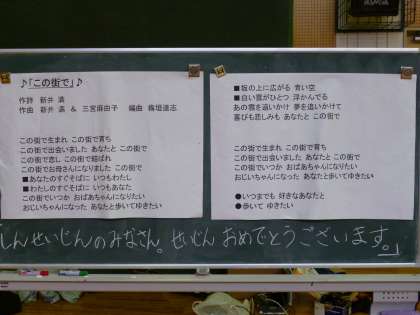 ♪「この街で」♪
作詩 新井 満
作曲 新井 満 & 三宮麻由子 編曲 梅垣達志
この街で生まれ この街で育ち
この街で出会いました あなたと この街で
この街で恋し この街で結ばれ
この街でお母さんになりました この街で
■あなたのすぐそばに いつもわたし
■わたしのすぐそばに いつもあなた
この街でいつか おばあちゃんになりたい
おじいちゃんになった あなたと歩いてゆきたい
■坂の上に広がる 青い空
■白い雲がひとつ 浮かんでる
あの雲を追いかけ 夢を追いかけて
喜びも悲しみも あなたと この街で
この街で生まれ この街で育ち
この街で出会いました あなたと この街で
この街でいつか おばあちゃんになりたい
おじいちゃんになった あなたと歩いてゆきたい
●いつまでも 好きなあなたと
●歩いて ゆきたい
「しんせいじんのみなさん。せいじん おめでとうございます。」